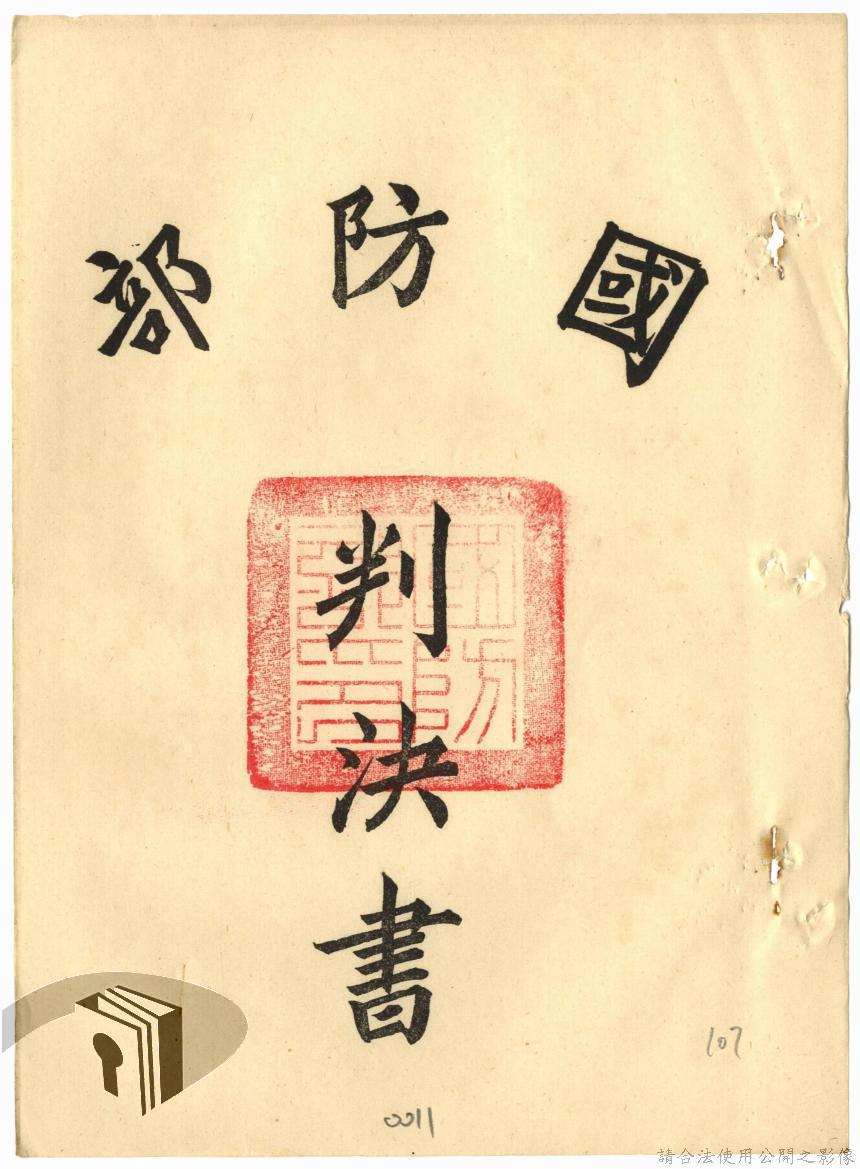 國防部
判決書
107
0011
請合法使用公開之影像